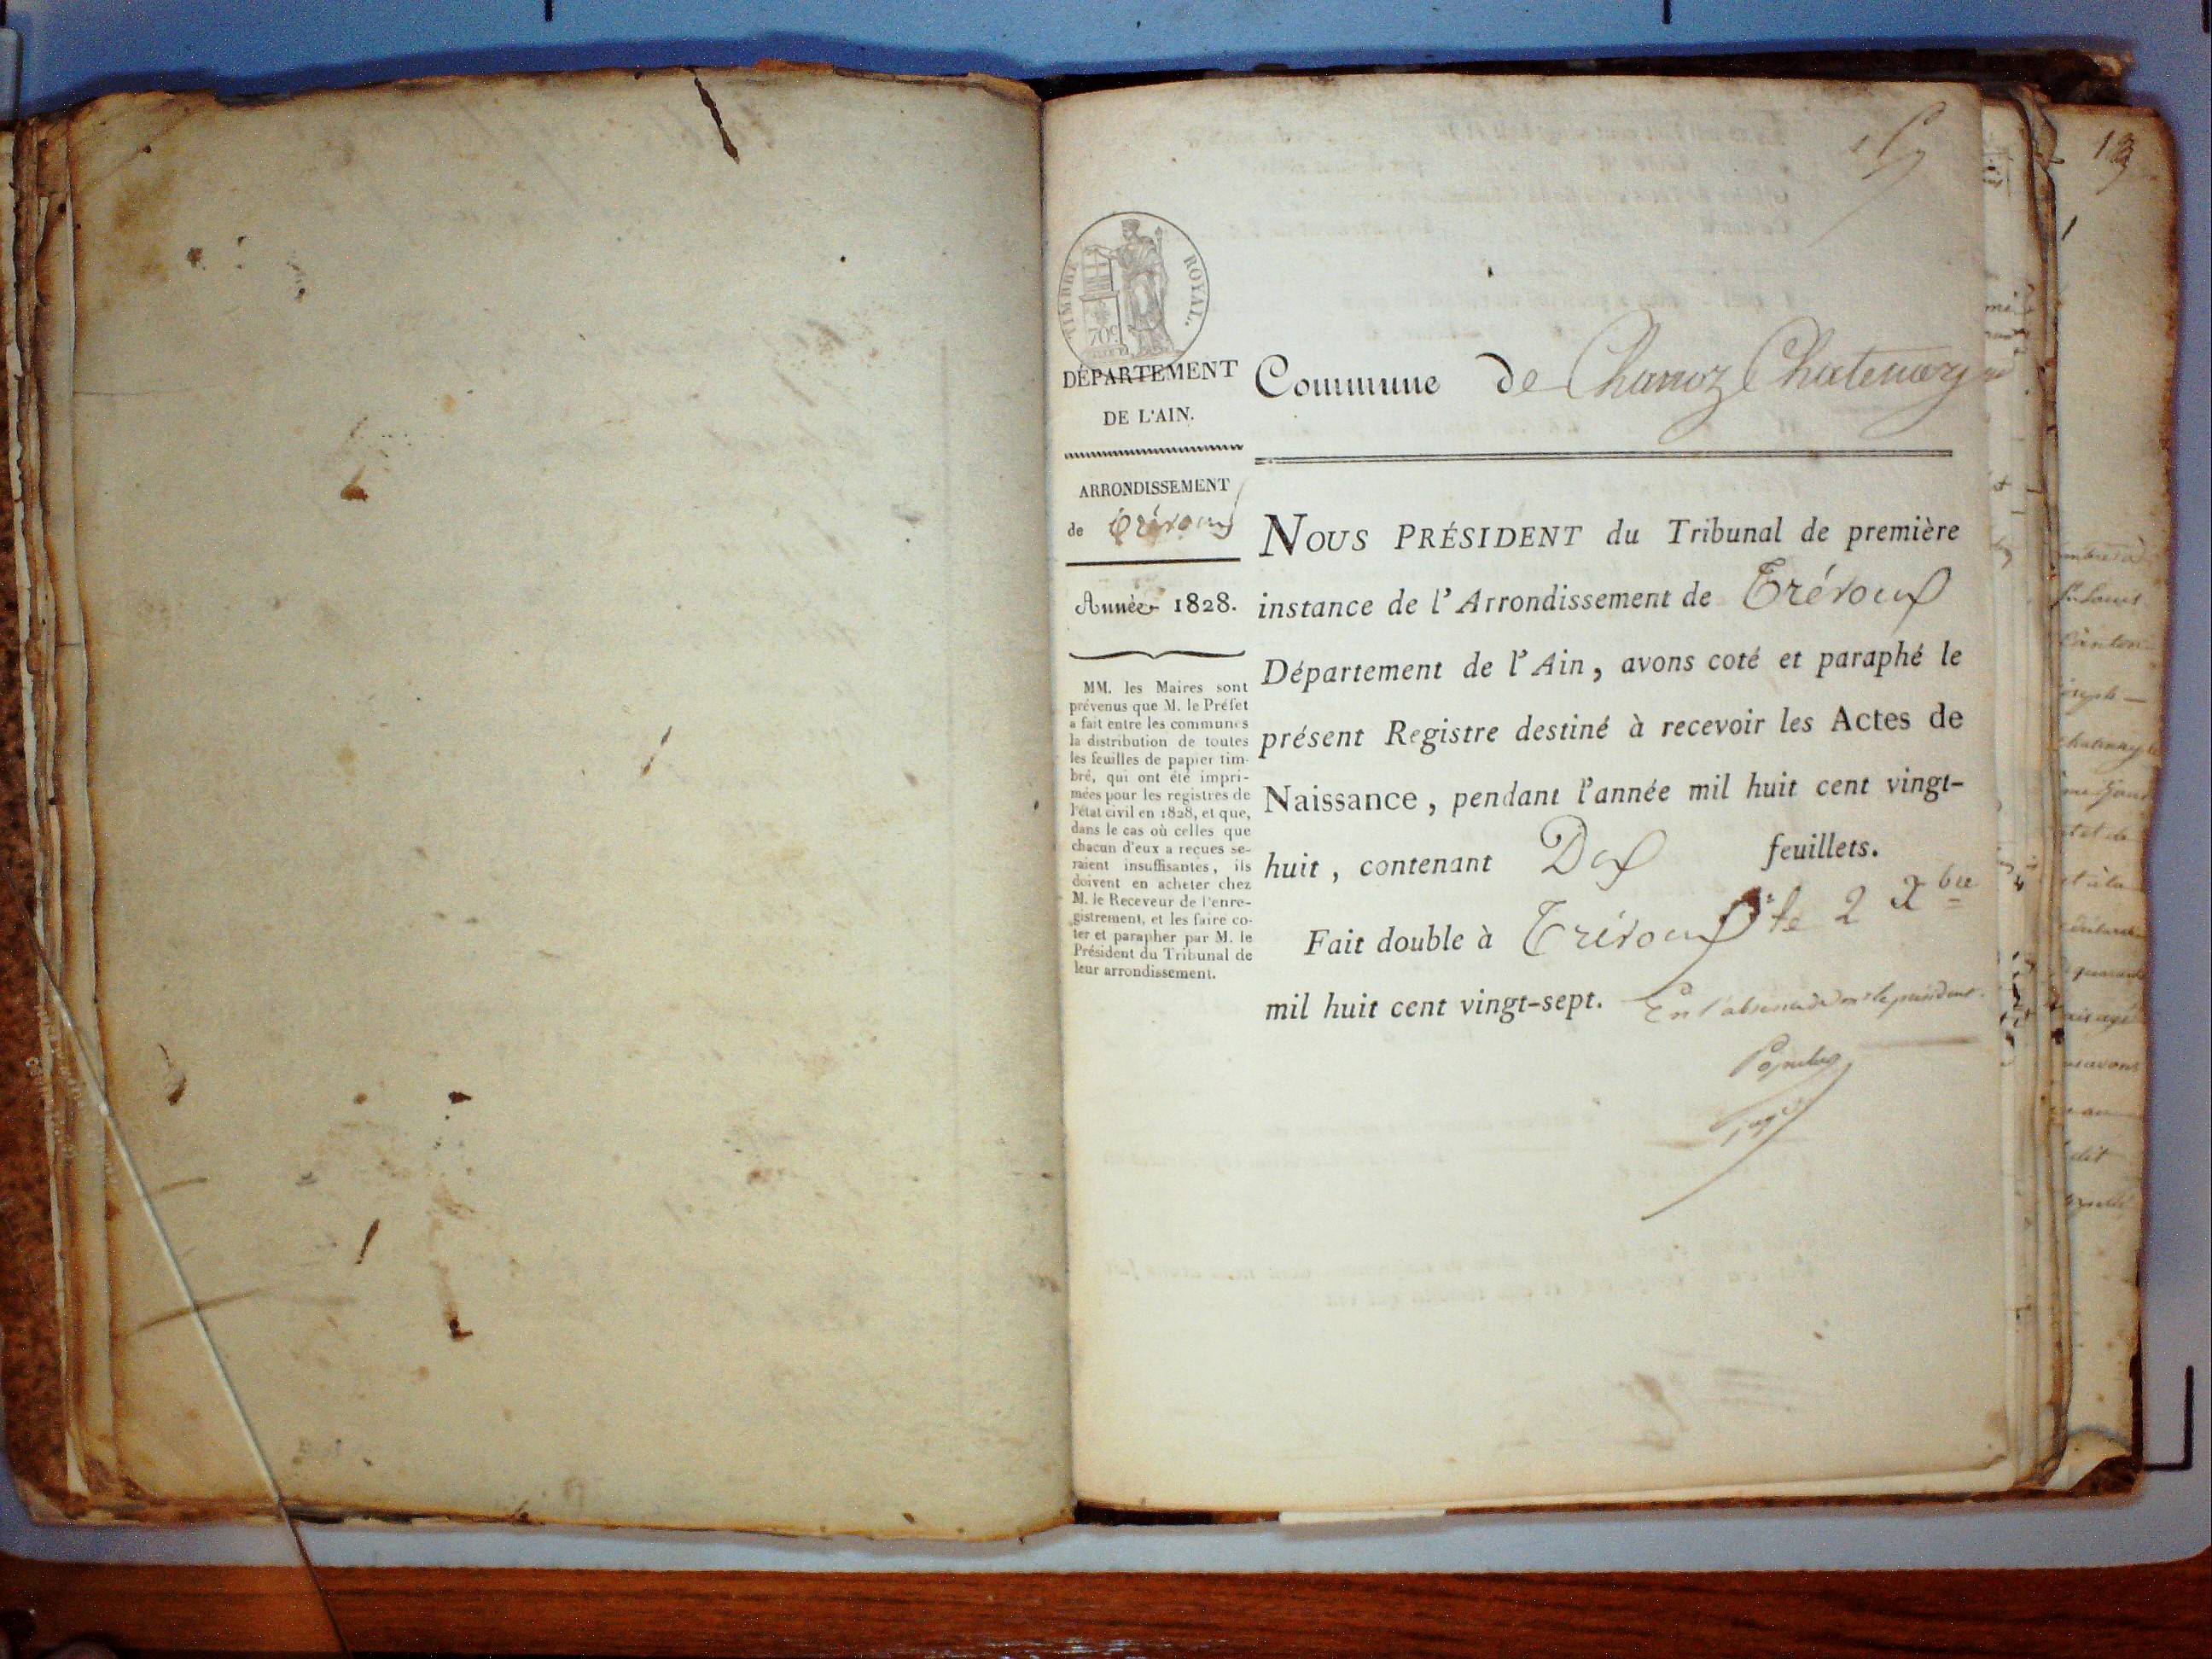 TIMBRE ROYAL.
70c
DÉPARTEMENT
DE L'AIN.
ARRONDISSEMENT
de Trévoux
Année 1828.
MM. les Maires sont
prévenus que M. le Préfet
a fait entre les communes
la distribution de toutes
les feuilles de papier tim-
bré, qui ont été impri-
mées pour les registres de
l'état civil en 1828, et que,
dans le cas où celles que
chacun d'eux a reçues se-
raient insuffisantes, ils
doivent en acheter chez
M. le Receveur de l'enre-
gistrement, et les faire co-
ter et parapher par M. le
Président du Tribunal de
leur arrondissement.
Commune de Chanoz Chatenay
NOUS PRÉSIDENT du Tribunal de première
instance de l'Arrondissement de Trévoux
Département de l'Ain, avons coté et paraphé le
présent Registre destiné à recevoir les Actes de
Naissance, pendant l'année mil huit cent vingt-
huit, contenant Dix feuillets.
Fait double à Trévoux le 2 Xbre
mil huit cent vingt-sept. En l'absence de mr le president.
Populus